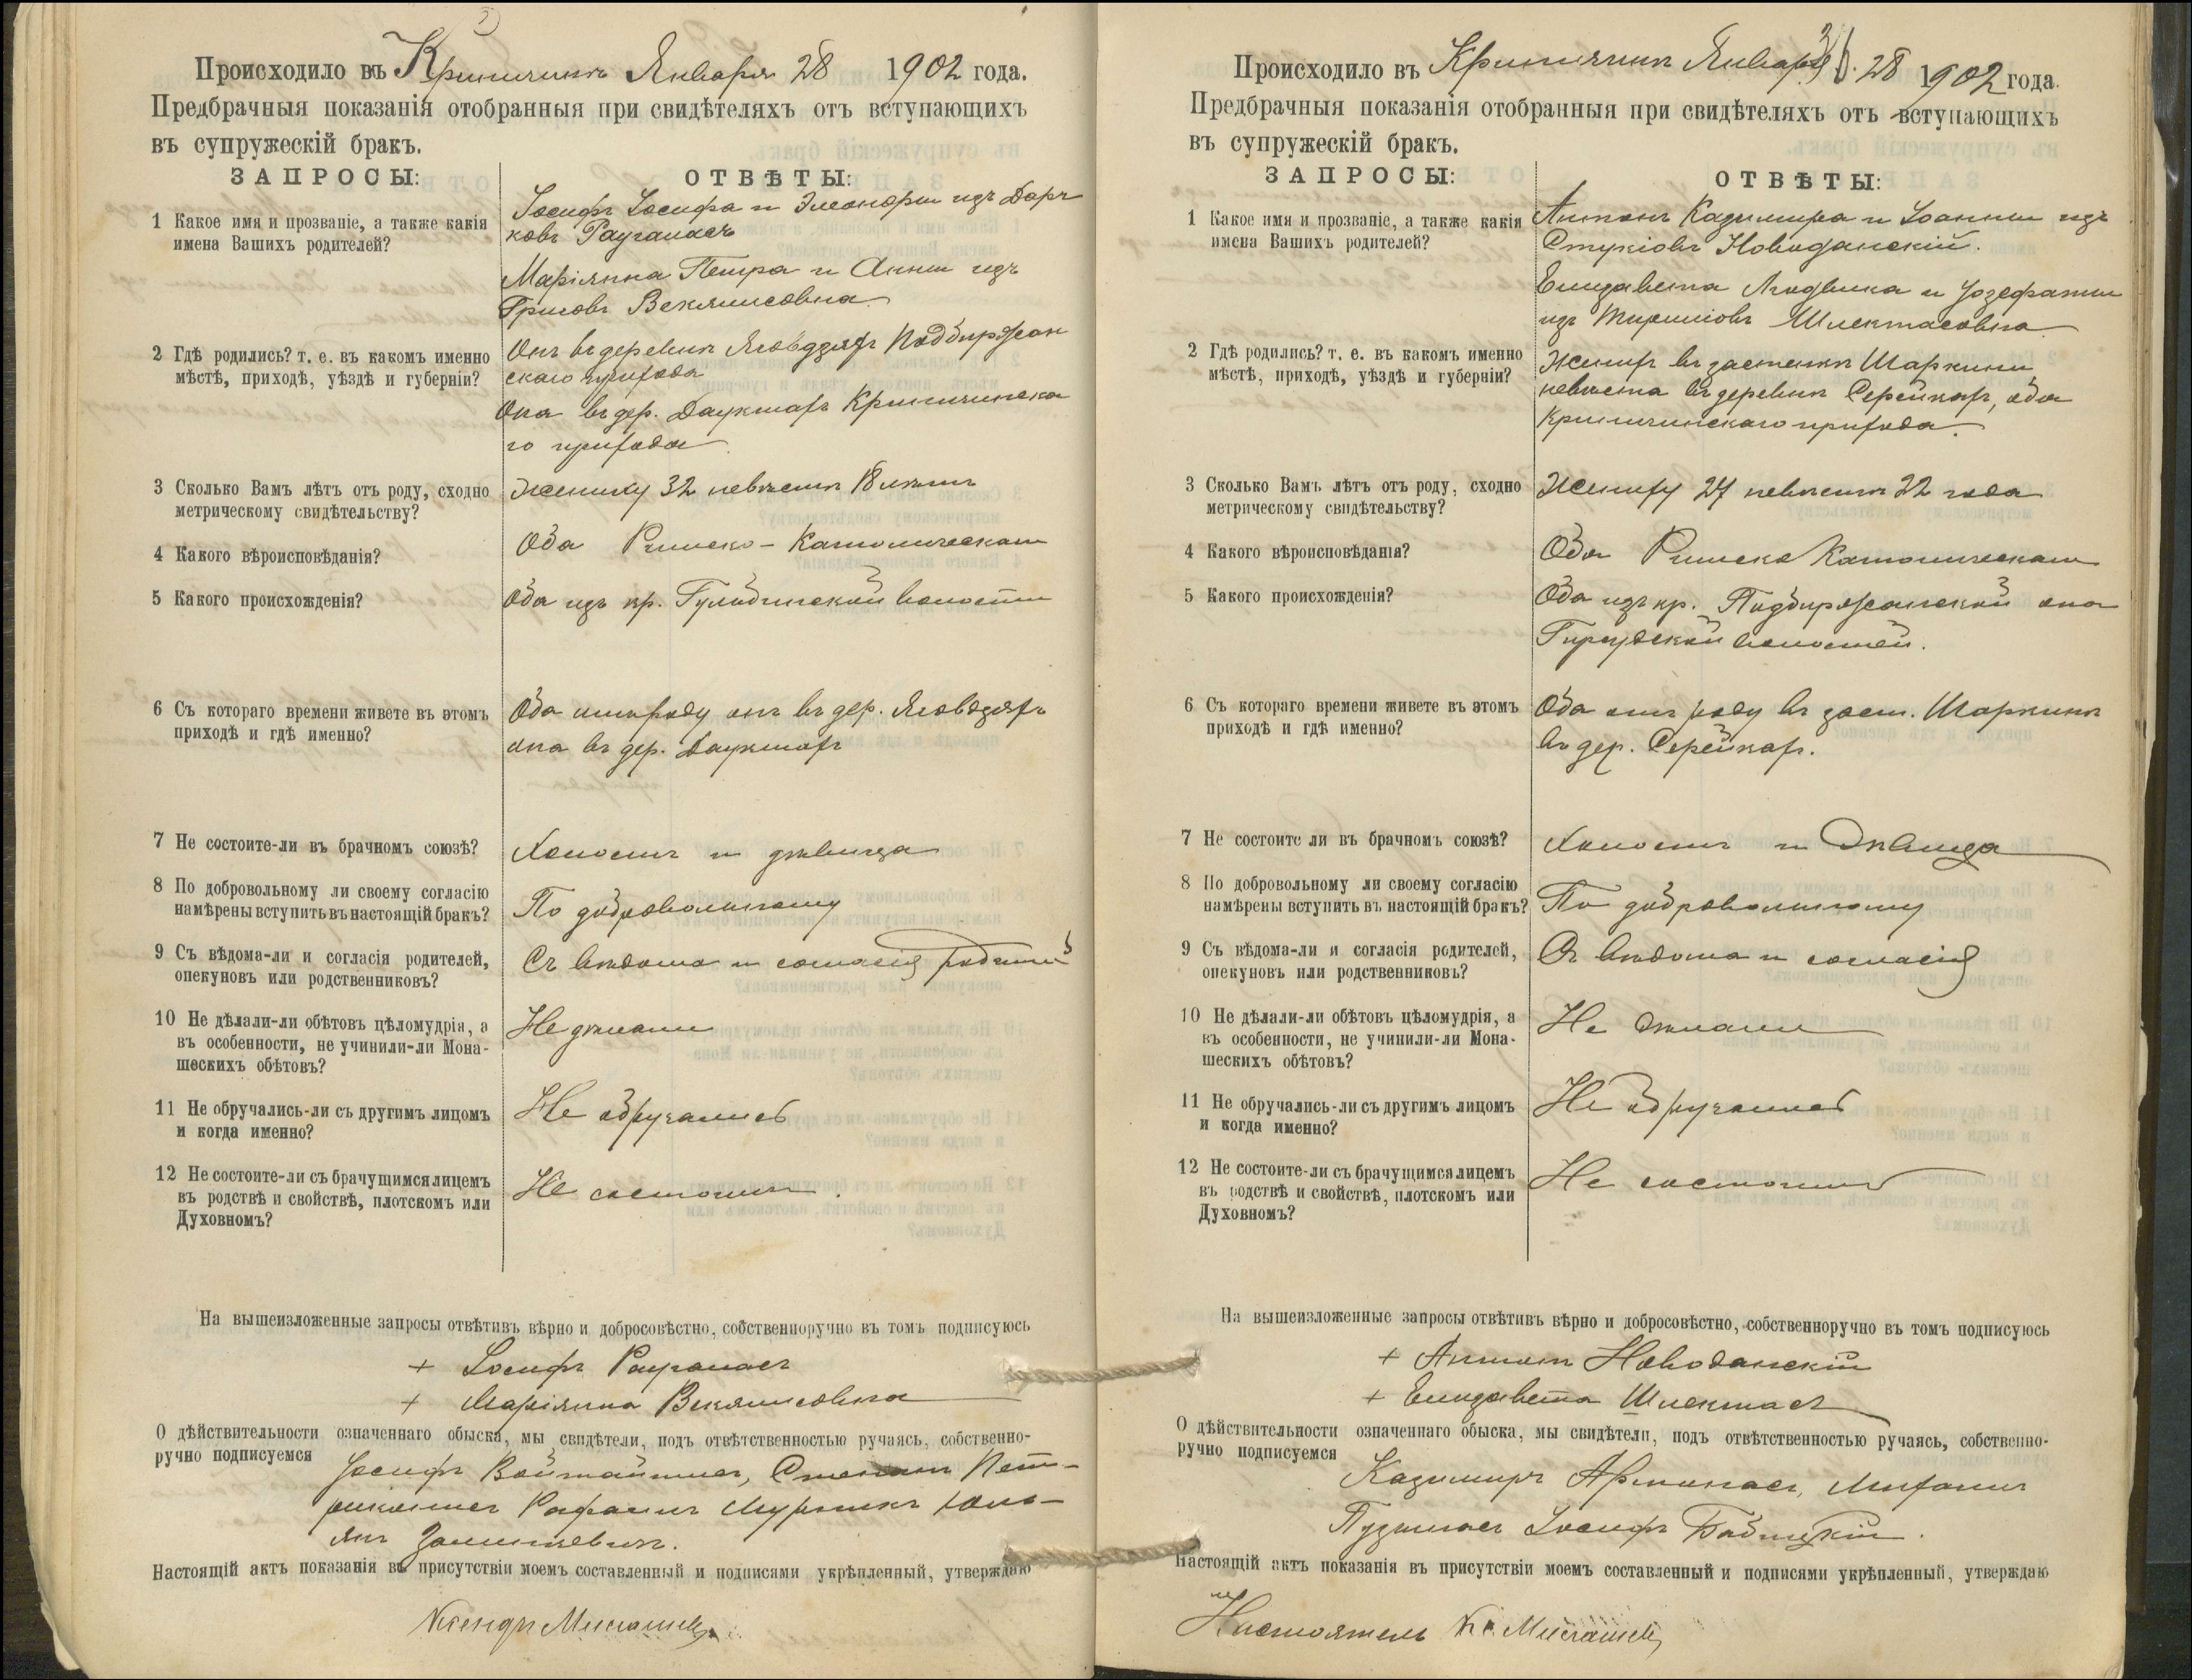 Происходило въ Криничинѣ Января 28 1902 года.
Предбрачныя показанія отобранныя при свидѣтеляхъ отъ вступающихъ
въ супружескій бракъ.
ЗАПРОСЫ:
ОТВѢТЫ:
1 Какое имя и прозваніе, а также какія
имена Вашихъ родителей?
Іосифъ Іосифа и Элеоноры изъ
Маріянна Петра и Анны изъ
Векялисовна
2 Гдѣ родились? т. е. въ какомъ именно
мѣстѣ, приходѣ, уѣздѣ и губерніи?
Онъ въ деревнѣ Подбиржан
скаго прихода
Она въ дер. Даукштахъ Криничинска
го прихода
3 Сколько Вамъ лѣтъ отъ роду, сходно
метрическому свидѣтельству?
Жениху 32 невѣстѣ 18 лѣтъ
4 Какого вѣроисповѣданія?
Оба Римско-Католическаго
5 Какого происхожденія?
Оба изъ кр. волости
6 Съ котораго времени живете въ этомъ
приходѣ и гдѣ именно?
Оба отъ роду онъ въ дер.
она въ дер. Даукштахъ
7 Не состоите-ли въ брачномъ союзѣ?
Холостъ и дѣвица
8 По добровольному ли своему согласію
намѣрены вступить въ настоящій бракъ?
По добровольному
9 Съ вѣдома-ли и согласія родителей,
опекуновъ или родственниковъ?
Съ вѣдома и согласія
10 Не дѣлали-ли обѣтовъ цѣломудрія, а
въ особенности, не учинили-ли Мона-
шескихъ обѣтовъ?
Не дѣлали
11 Не обручались-ли съ другимъ лицомъ
и когда именно?
Не обручались
12 Не состоите-ли съ брачущимся лицемъ
въ родствѣ и свойствѣ, плотскомъ или
Духовномъ?
Не состоимъ.
На вышеизложенные запросы отвѣтивъ вѣрно и добросовѣстно, собственноручно въ томъ подписуюсь
+ Іосифъ
+ Маріянна Векялисовна
О дѣйствительности означеннаго обыска, мы свидѣтели, подъ отвѣтственностью ручаясь, собственно-
ручно подписуемся
Іосифъ Войтайтисъ, Степанъ
Рафаилъ
Настоящій актъ показанія въ присутствіи моемъ составленный и подписями укрѣпленный, утверждаю
Ксендзъ
Происходило въ Криничинѣ Января 28 1902 года.
Предбрачныя показанія отобранныя при свидѣтеляхъ отъ вступающихъ
въ супружескій бракъ.
ЗАПРОСЫ:
ОТВѢТЫ:
1 Какое имя и прозваніе, а также какія
имена Вашихъ родителей?
Антонъ Казимира и Іоанны изъ
Новоданскій.
Елизавета Людвика и Іозефаты
изъ Шлектасовна
2 Гдѣ родились? т. е. въ какомъ именно
мѣстѣ, приходѣ, уѣздѣ и губерніи?
Женихъ въ застенкѣ Шаркини
невѣста въ деревнѣ Серейкахъ, оба
Криничинскаго прихода.
3 Сколько Вамъ лѣтъ отъ роду, сходно
метрическому свидѣтельству?
Жениху 27 невѣстѣ 22 года
4 Какого вѣроисповѣданія?
Оба Римско Католическаго
5 Какого происхожденія?
Оба изъ кр. Подбиржанской она
волостей.
6 Съ котораго времени живете въ этомъ
приходѣ и гдѣ именно?
Оба отъ роду въ заст. Шаркини
въ дер. Серейкахъ.
7 Не состоите ли въ брачномъ союзѣ?
Холостъ и Дѣвица
8 По добровольному ли своему согласію
намѣрены вступить въ настоящій бракъ?
По добровольному
9 Съ вѣдома-ли и согласія родителей,
опекуновъ или родственниковъ?
Съ вѣдома и согласія
10 Не дѣлали-ли обѣтовъ цѣломудрія, а
въ особенности, не учинили-ли Мона-
шескихъ обѣтовъ?
Не дѣлали
11 Не обручались-ли съ другимъ лицомъ
и когда именно?
Не обручались
12 Не состоите-ли съ брачущимся лицемъ
въ родствѣ и свойствѣ, плотскомъ или
Духовномъ?
Не состоимъ
На вышеизложенные запросы отвѣтивъ вѣрно и добросовѣстно, собственноручно въ томъ подписуюсь
+ Антонъ Новоданскій
+ Елизавета Шлектасъ
О дѣйствительности означеннаго обыска, мы свидѣтели, подъ отвѣтственностью ручаясь, собственно-
ручно подписуемся
Казимиръ Армонасъ, Михаилъ
Іосифъ
Настоящій актъ показанія въ присутствіи моемъ составленный и подписями укрѣпленный, утверждаю
Настоятель